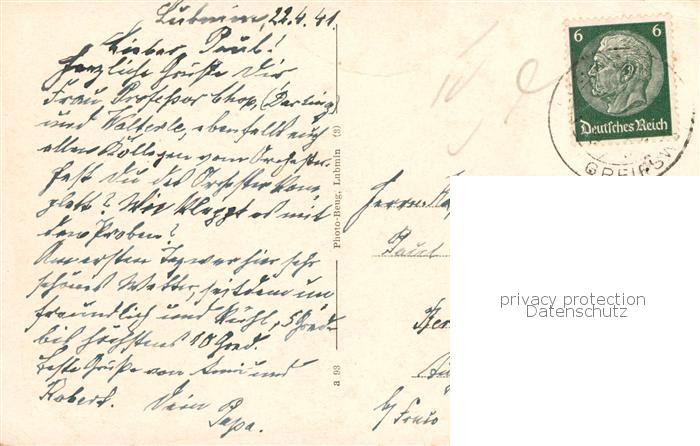 Lubmin, 22.4.41.
Lieber Paul!
Herzliche Grüße Dir
Frau Professor Chop, (Darling)
und Walterle, ebenfalls auch
allen Kollegen vom Orchester.
Hast Du das Orchester kom-
plett? Wie klappt es mit
den Proben?
Am ersten Tag war hier sehr
schönes Wetter, seitdem un
freundlich und kühl, 5 Grad
bis höchstens 10 Grad.
Beste Grüße von Anni und
Robert. Dein
Papa.
a 93 Photo-Beug, Lubmin (3)
6 6
Deutsches Reich
Herrn
Paul
privacy protection
Datenschutz
b/ Frau